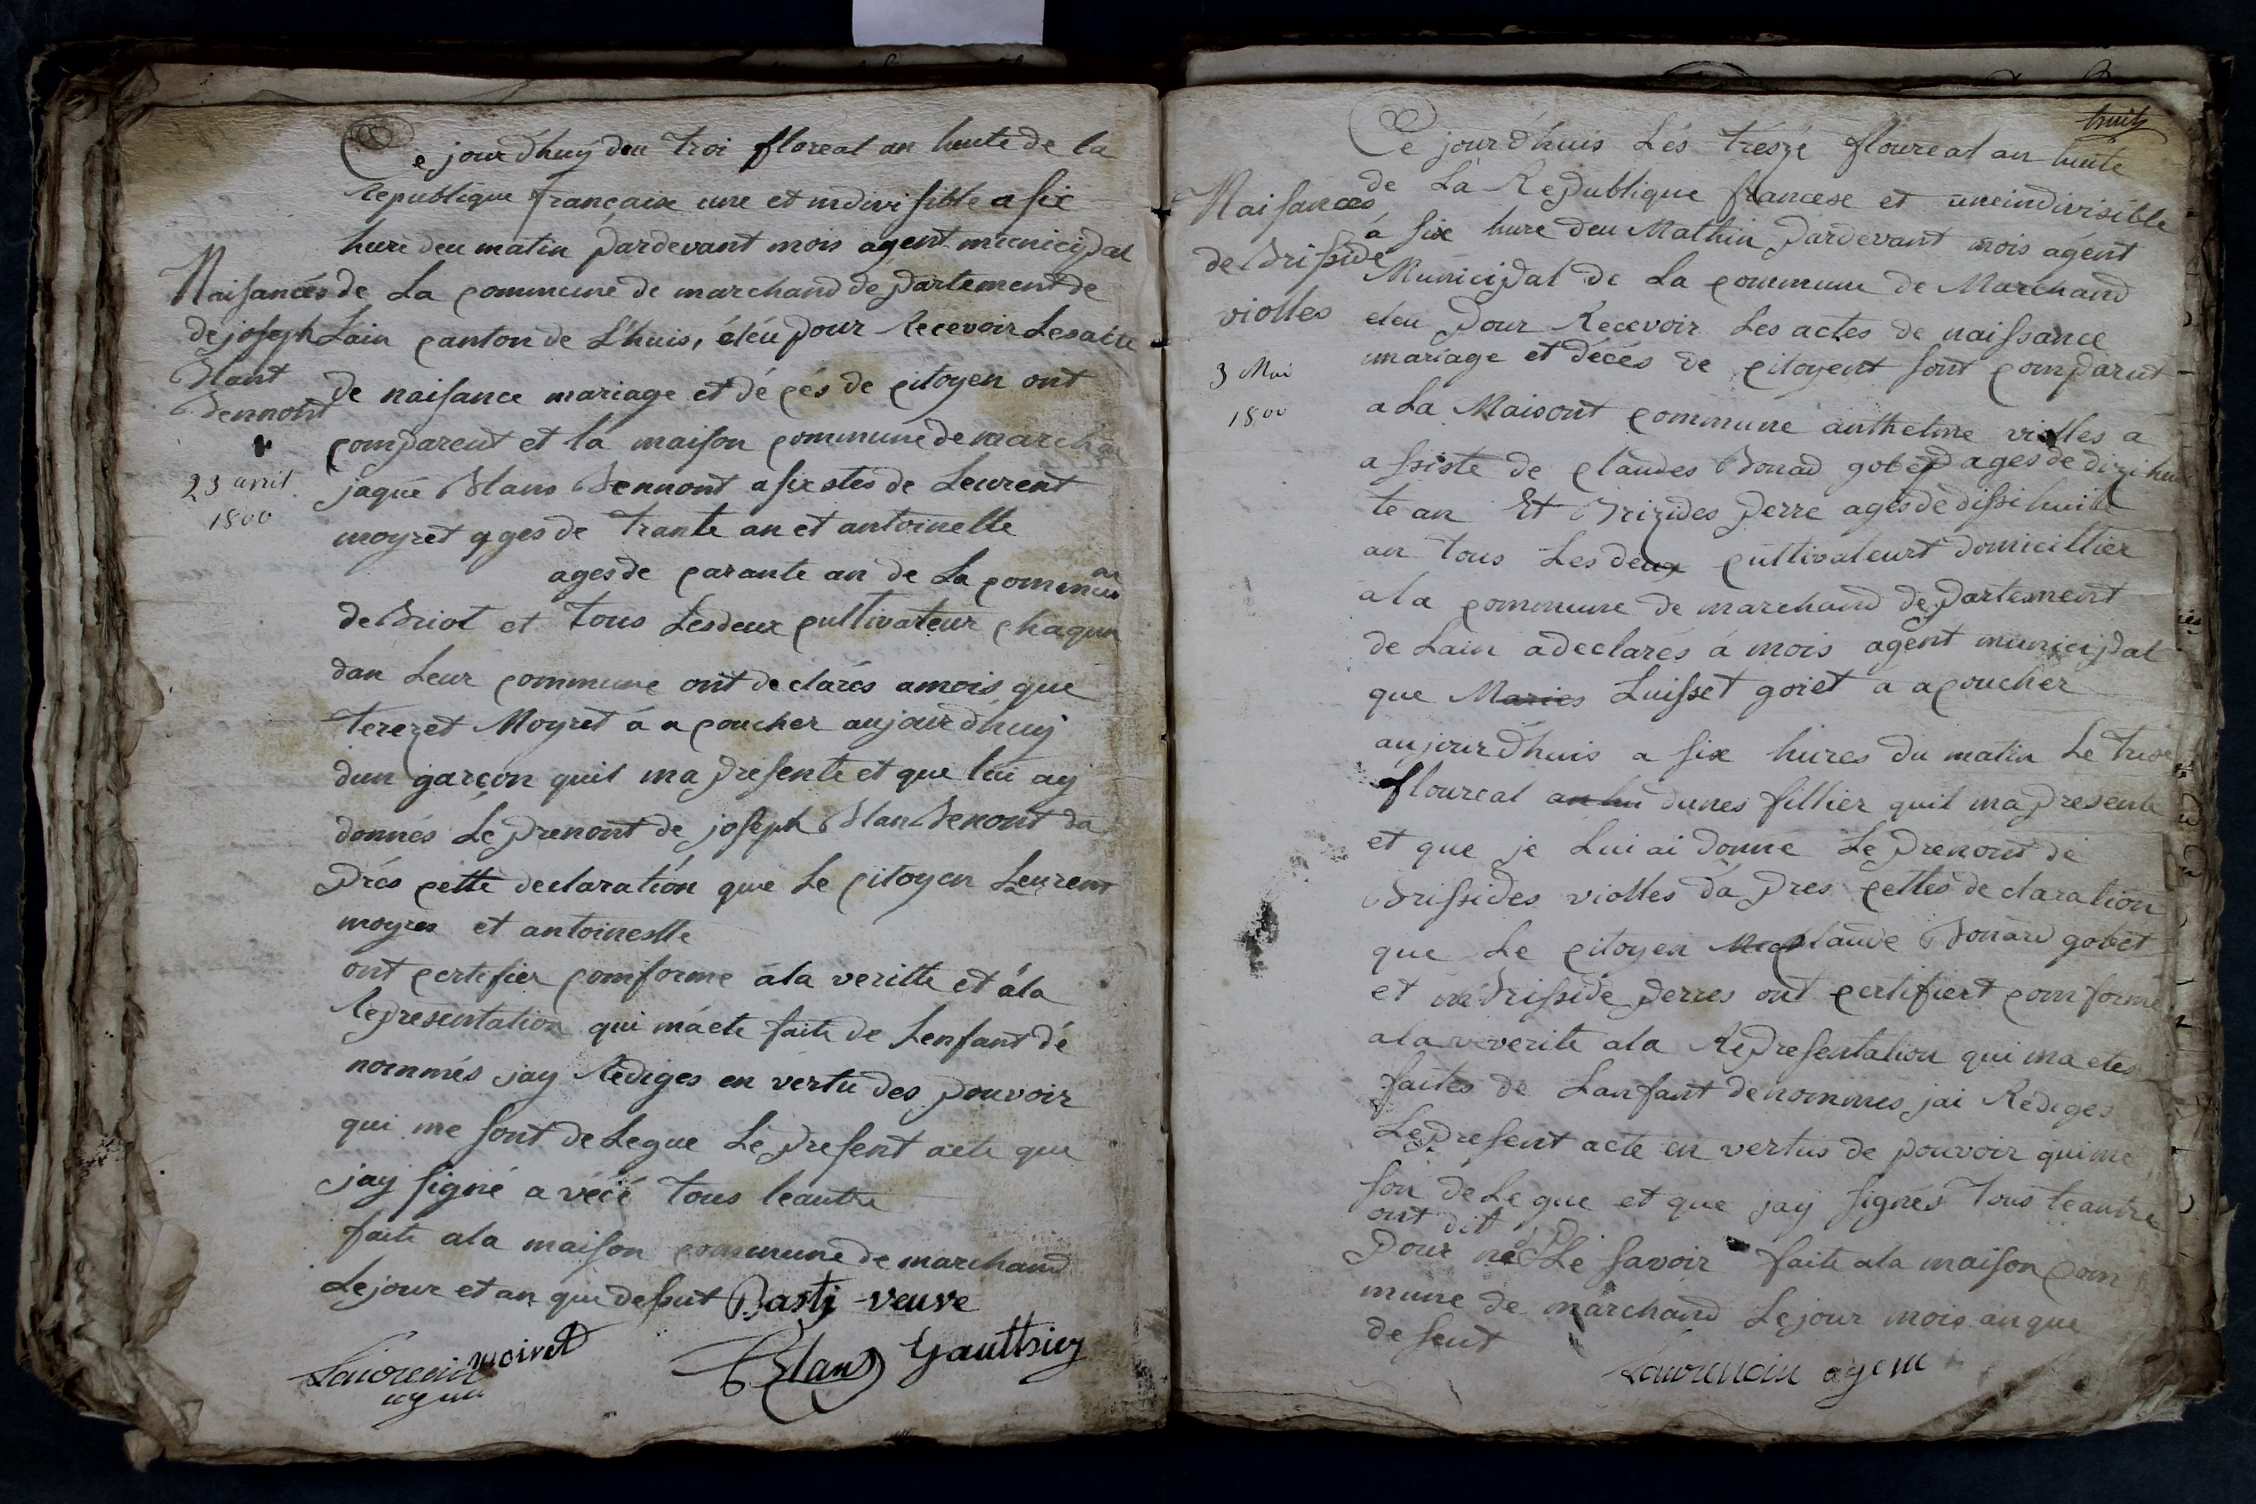 Ce jour dhuy deu troi floreal an huite de la
republique francaix une et indivisible a six
hure deu matin pardevant mois agent municipal
Naisances de La commune de marchand departement de
de joseph Lain canton de L'huis, éléu pour recevoir Les acte
Blant
de naisance mariage et dé cés de citoyen ont
Bennont
comparent et la maison commune de marchan
jaque Blans Bennont asixstes de Leurent
23 avril
1800
moyret ages de trante an et antoinette
ages de carante an de La commune
de Briot et tous Les deux cultivateur chaqun
dan Leur commune ont declarés a mois que
terezet Moyret á a coucher aujourdhuy
dun garcon quil ma presente et que lui ay
donnés Lé prenont de joseph Blan Benont da
prés cette declaration que Le citoyen Leurent
moyret et antoinestte
ont certifier comforme ala veritte et ála
representation qui mà ete faite de Lenfant dé
nommés jay rédiges en vertu des pouvoir
qui me sont de Legue Lé present acte que
jay signé a vécé tous leautre
faite ala maison commune de marchand
Le jour et an que desut Basti veuve
moiret
Blans Gauthier
agent
huits
Ce jour d'huis Lés trésze floureal an huite
de La Republique francese et uneindivisible
Naisances
á six hure deu Mathin pardevant mois agent
de Brisside
Municipal de La commune de Marchand
violles
eleu pour Recevoir Les actes de naissance
mariage et décés de citoyent sont comparut
3 Mai
1800
a La Maisont commune anthelme violles a
assiste de claudes Bonard gobet ages de dizihui
te an Et Brizides perre ages de dissihuit
an tous Les deux cultivateurt domicillier
ala commune de marchand departement
de Lain a declarés á mois agent municipal
que Maries Luisset goiet a acoucher
aujour d'huis a six hures du matin Le trise
floureal an hui dunes fillier quil ma presente
et que je Lui ai donne Le prenont de
Brissides violles dá pres cettes declaration
que Le citoyen claude Bonard gobet
et Brisside perres ont certifiert comforme
ala veverite ala Representation qui ma etes
faites de Lanfant denommes jai Rediges
Le present acte en vertus de pouvoir qui me
son de Legue et que jay signés tous leautre
ont dit
pour ne Le savoir faite ala maison com
mune de marchand Le jour mois an que
de sent
agent